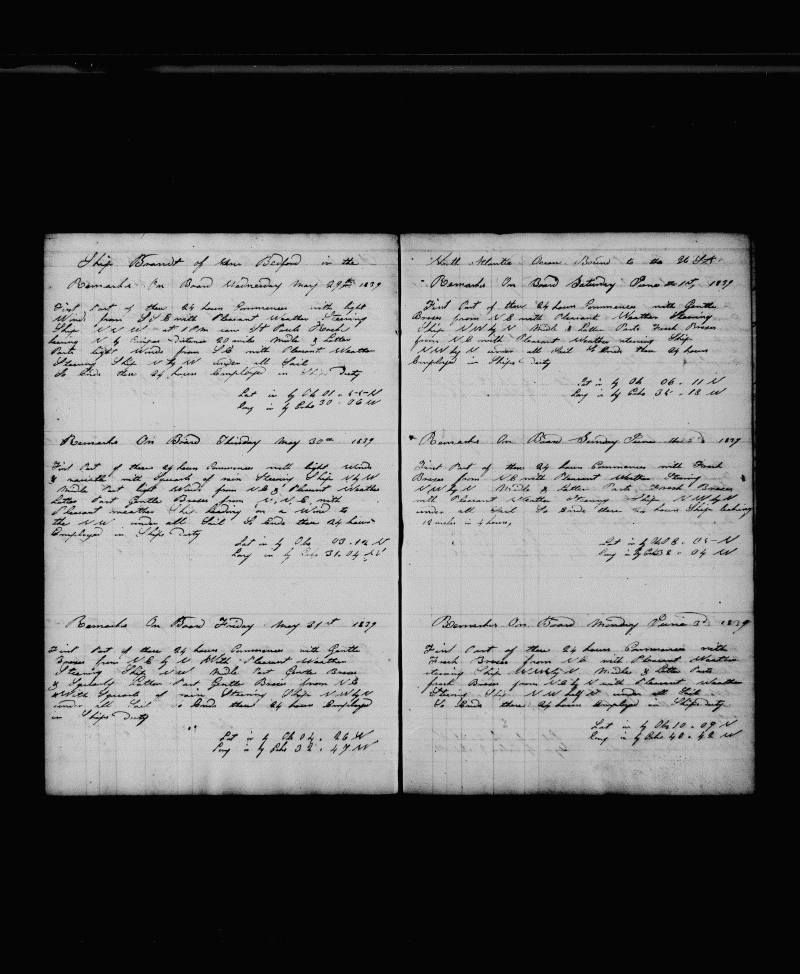 Ship Brandt of New Bedford in the
Remarks On Board Wednesday May 29th 1839
First Part of these 24 hours Commences with light
Wind from S.E with Pleasant Weather Steering
Ship N N W at 1 PM saw St Pauls Rock
bearing N by Compas Distance 20 miles Middle & Latter
Parts light Winds from S.E with Pleasant Weather
Steering Ship N by W under all Sail
So Ends these 24 hours Employed in Ships duty
Lat in by Ob 01 - 55 N
Long in by 30 - 06 W
Remarks On Board Thirsday May 30th 1839
First Part of these 24 hours Commences with light Winds
& variable with Squals of rain Steering Ship N by W
Middle Part light Winds from N E & Pleasant Weathe
Latter Part Gentle Breses from N.N.E with
Pleasant weather Ship heading on a Wind to
the N W under all Sail So Ends these 24 hours
Employed in Ships duty
Lat in by Obs 03 - 14 N
Long in by 31 - 04 W
Remarks On Board Friday May 31st 1839
First Part of these 24 hours Commences with Gentle
Breses from N E by N With Pleasant Weather
Steering Ship N W Middle Part Gentle Breses
& Squaly Latter Part Gentle Breses from N E
With Squals of rain Steering Ship N W by N
under all Sail So Ends these 24 hours Employed
in Ships duty
Lat in by Ob 04 - 26 N
Long in by 32 - 47 W
North Atlantic Ocean Bound to the U St
Remarks On Board Saturday June 1st 1839
First Part of these 24 hours Commences with Gentle
Breses from N E with Pleasant Weather Steering
Ship N W by N Middle & Latter Parts Fresh Breses
from N E with Pleasant Weather steering Ship
N W by N under all Sail So Ends these 24 hours
Employed in Ships duty
Lat in by Ob 06 - 11 N
Long in by 35 - 18 W
Remarks On Board Sunday June the 2d 1839
First Part of these 24 hours Commences with Fresh
Breses from N E with Pleasant Weather Steering
N W by N Middle & Latter Parts Fresh Breses
with Pleasant Weather Steering Ship N W by N
under all Sail So Ends these 24 hours Ships
in 4 hours,
Lat in by Ob 08 - 05 N
Long in by 38 - 04 W
Remarks On Board Monday June 3d 1839
First Part of these 24 hours Commences with
Fresh Breses from N E with Pleasant Weather
steering Ship N W by N Middle & Latter Parts
fresh Breses from N E by N with Pleasant Weather
Steering Ship N W by N under all Sail
So Ends these 24 hours Employed in Ships duty
Lat in by Ob 10 - 09 N
Long in by 40 - 42 W